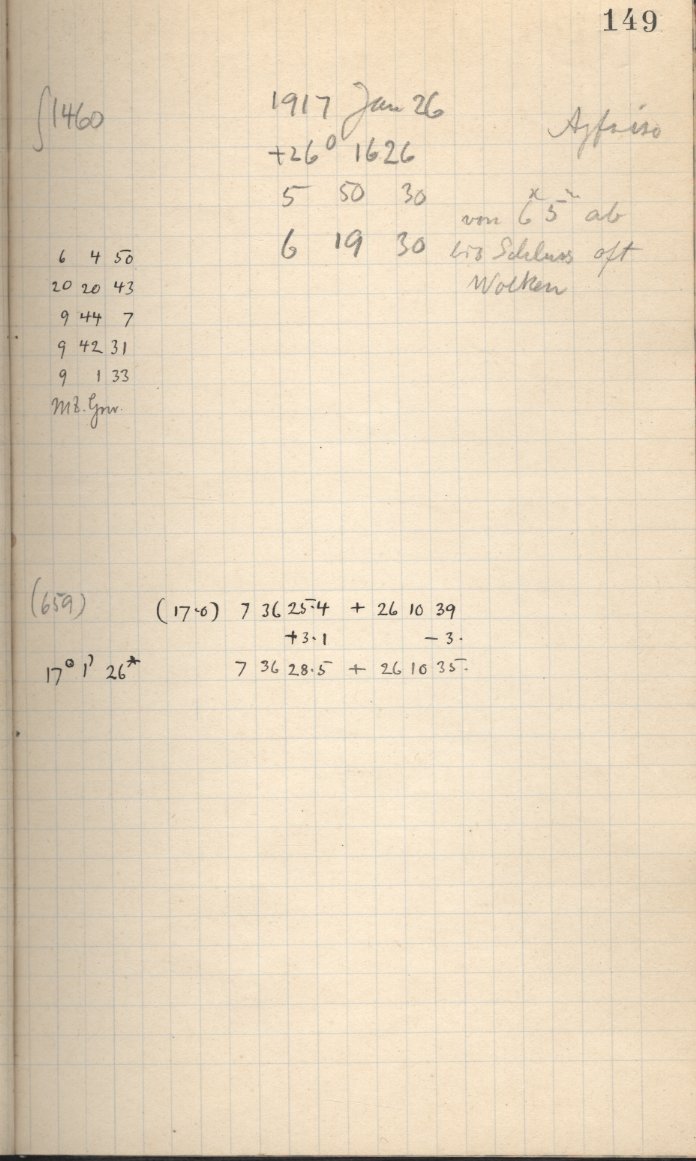 149
1460
1917 Jan 26
+26° 1626
5 50 30
6 19 30
von 6ʰ 5ᵐ ab
bis Schluss oft
Wolken
6 4 50
20 20 43
9 44 7
9 42 31
9 1 33
MZ. Grw.
(659) (17.0) 7 36 25.4 + 26 10 39
+3.1 - 3.
17° 1' 26* 7 36 28.5 + 26 10 35.